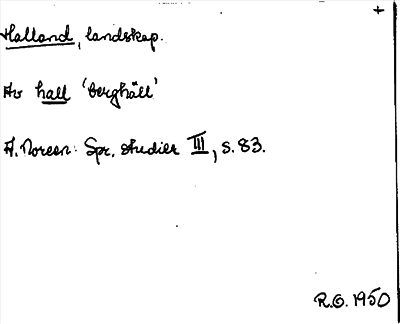 +
Halland, landskap.
Av hall 'berghäll'
A. Noreen: Spr. studier III, s. 83.
R.G. 1950